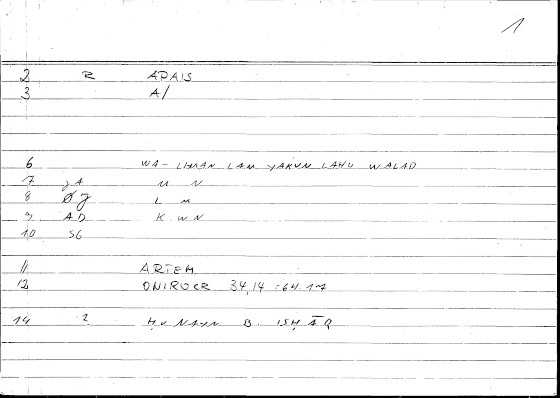 1
2 R APAIS
3 A/
6 WA- LIMAN LAM YAKUN LAHU WALAD
7 JA M N
8 ØJ L M
9 AD K W N
10 SG
11 ARTEM
12 ONIROCR 34,14 = 64.17
14 2 ḤUNAYN B. ISḤĀQ